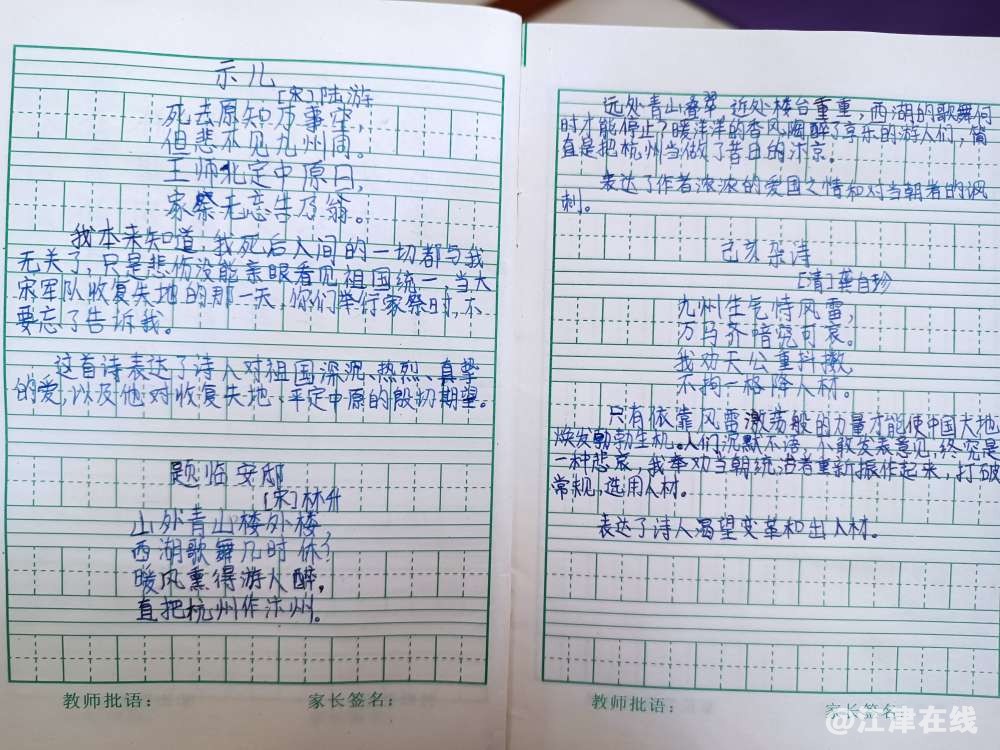 示儿
[宋]陆游
死去原知万事空,
但悲不见九州同。
王师北定中原日,
家祭无忘告乃翁。
我本来知道,我死后人间的一切都与我
无关了,只是悲伤没能亲眼看见祖国统一,当大
宋军队收复失地的那一天,你们举行家祭时,不
要忘了告诉我。
这首诗表达了诗人对祖国深沉、热烈、真挚
的爱,以及他对收复失地、平定中原的殷切期望。
题临安邸
[宋]林升
山外青山楼外楼,
西湖歌舞几时休?
暖风熏得游人醉,
直把杭州作汴州。
教师批语:
家长签名:
远处青山叠翠,近处楼台重重,西湖的歌舞何
时才能停止?暖洋洋的香风陶醉了享乐的游人们,简
直是把杭州当做了昔日的汴京。
表达了作者浓浓的爱国之情和对当朝者的讽
刺。
己亥杂诗
[清]龚自珍
九州生气恃风雷,
万马齐喑究可哀。
我劝天公重抖擞,
不拘一格降人材。
只有依靠风雷激荡般的力量才能使中国大地
焕发勃勃生机。人们沉默不语,不敢发表意见,终究是
一种悲哀,我奉劝当朝统治者重新振作起来,打破
常规,选用人材。
表达了诗人渴望变革和出人材。
教师批语:
家长签名
@江津在线